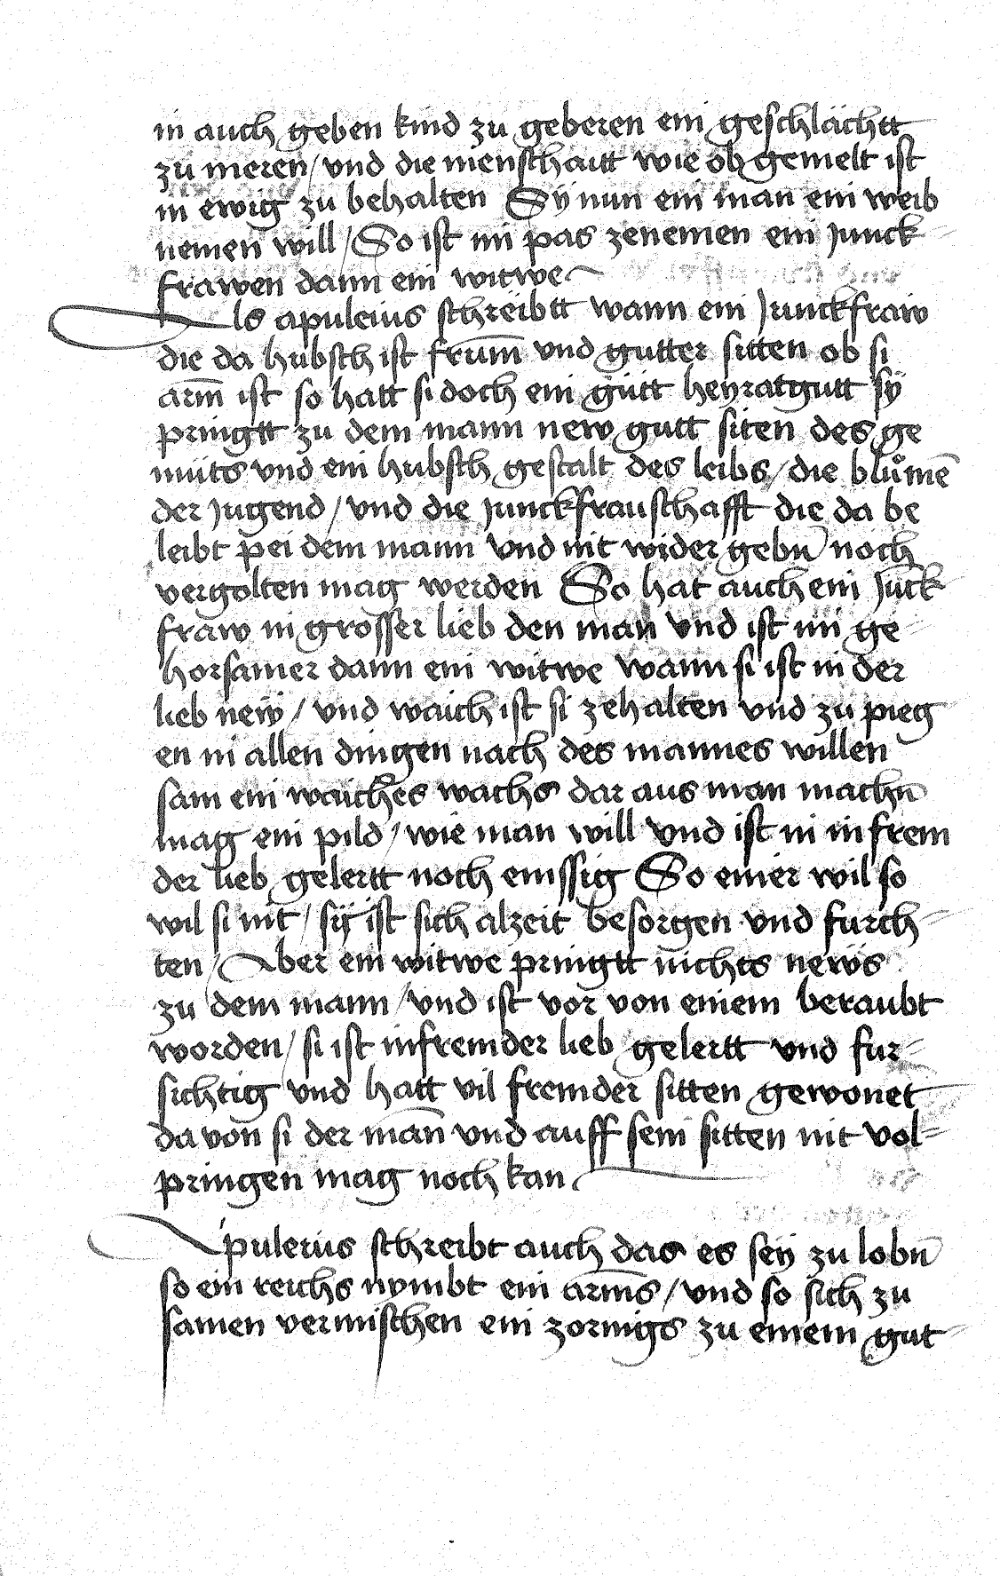 in auch geben kind zu geberen ein geschlächtt
zu meren / vnd die menschaitt wie ob gemelt ist
in ewig zu behalten Sÿ nun ein man ein weib
nemen will / So ist im pas zenemen ein Junck-
frawen dann ein witwe
Als apuleius schreibtt wann ein Junckfraw
die da hubsch ist frum̄ vnd gutter sitten ob si
arm̄ ist so hatt si doch ein gutt heyratgutt sÿ
pringtt zu dem mann new gutt siten des ge
muts vnd ein hubsch gestalt des leibs / die blůmē
der Jugend / vnd die Junckfrauschafft die da be
leibt pei dem mann vnd nit wider gebn̄ noch
vergolten mag werden So hat auch ein Juck-
fraw in grosser lieb den man vnd ist im ge-
horsamer dann ein witwe wann si ist in der
lieb neẅ / vnd waich ist si zehalten vnd zu pieg
en in allen dingen nach des mannes willen
sam ein waiches wachs dar aus man machn̄
mag ein pild / wie man will vnd ist in in frem
der lieb gelertt noch emssig So einer wil so
wil si nit / sÿ ist sich alzeit besorgen vnd furch-
ten / Aber ein witwe pringtt nichts neẅs
zu dem mann / vnd ist vor von einem beraubt
worden / si ist infremder lieb gelertt vnd fur-
sichtig vnd hatt vil fremder sitten gewonet
da von si der man̄ vnd auff sein sitten nit vol-
pringen mag noch kan
Apuleius schreibt auch das es seÿ zu lobn̄
so ein reichs nymbt ein arm̄s / vnd so sich zu
samen vermischen ein zornigs zu einem gut-